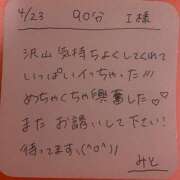 4/23 90分 I様
沢山気持ちよくしてくれて
いっぱいイッちゃった!!!
めちゃくちゃ興奮した♡♡
また お誘いして下さい!
待ってます\(^o^)/
みと